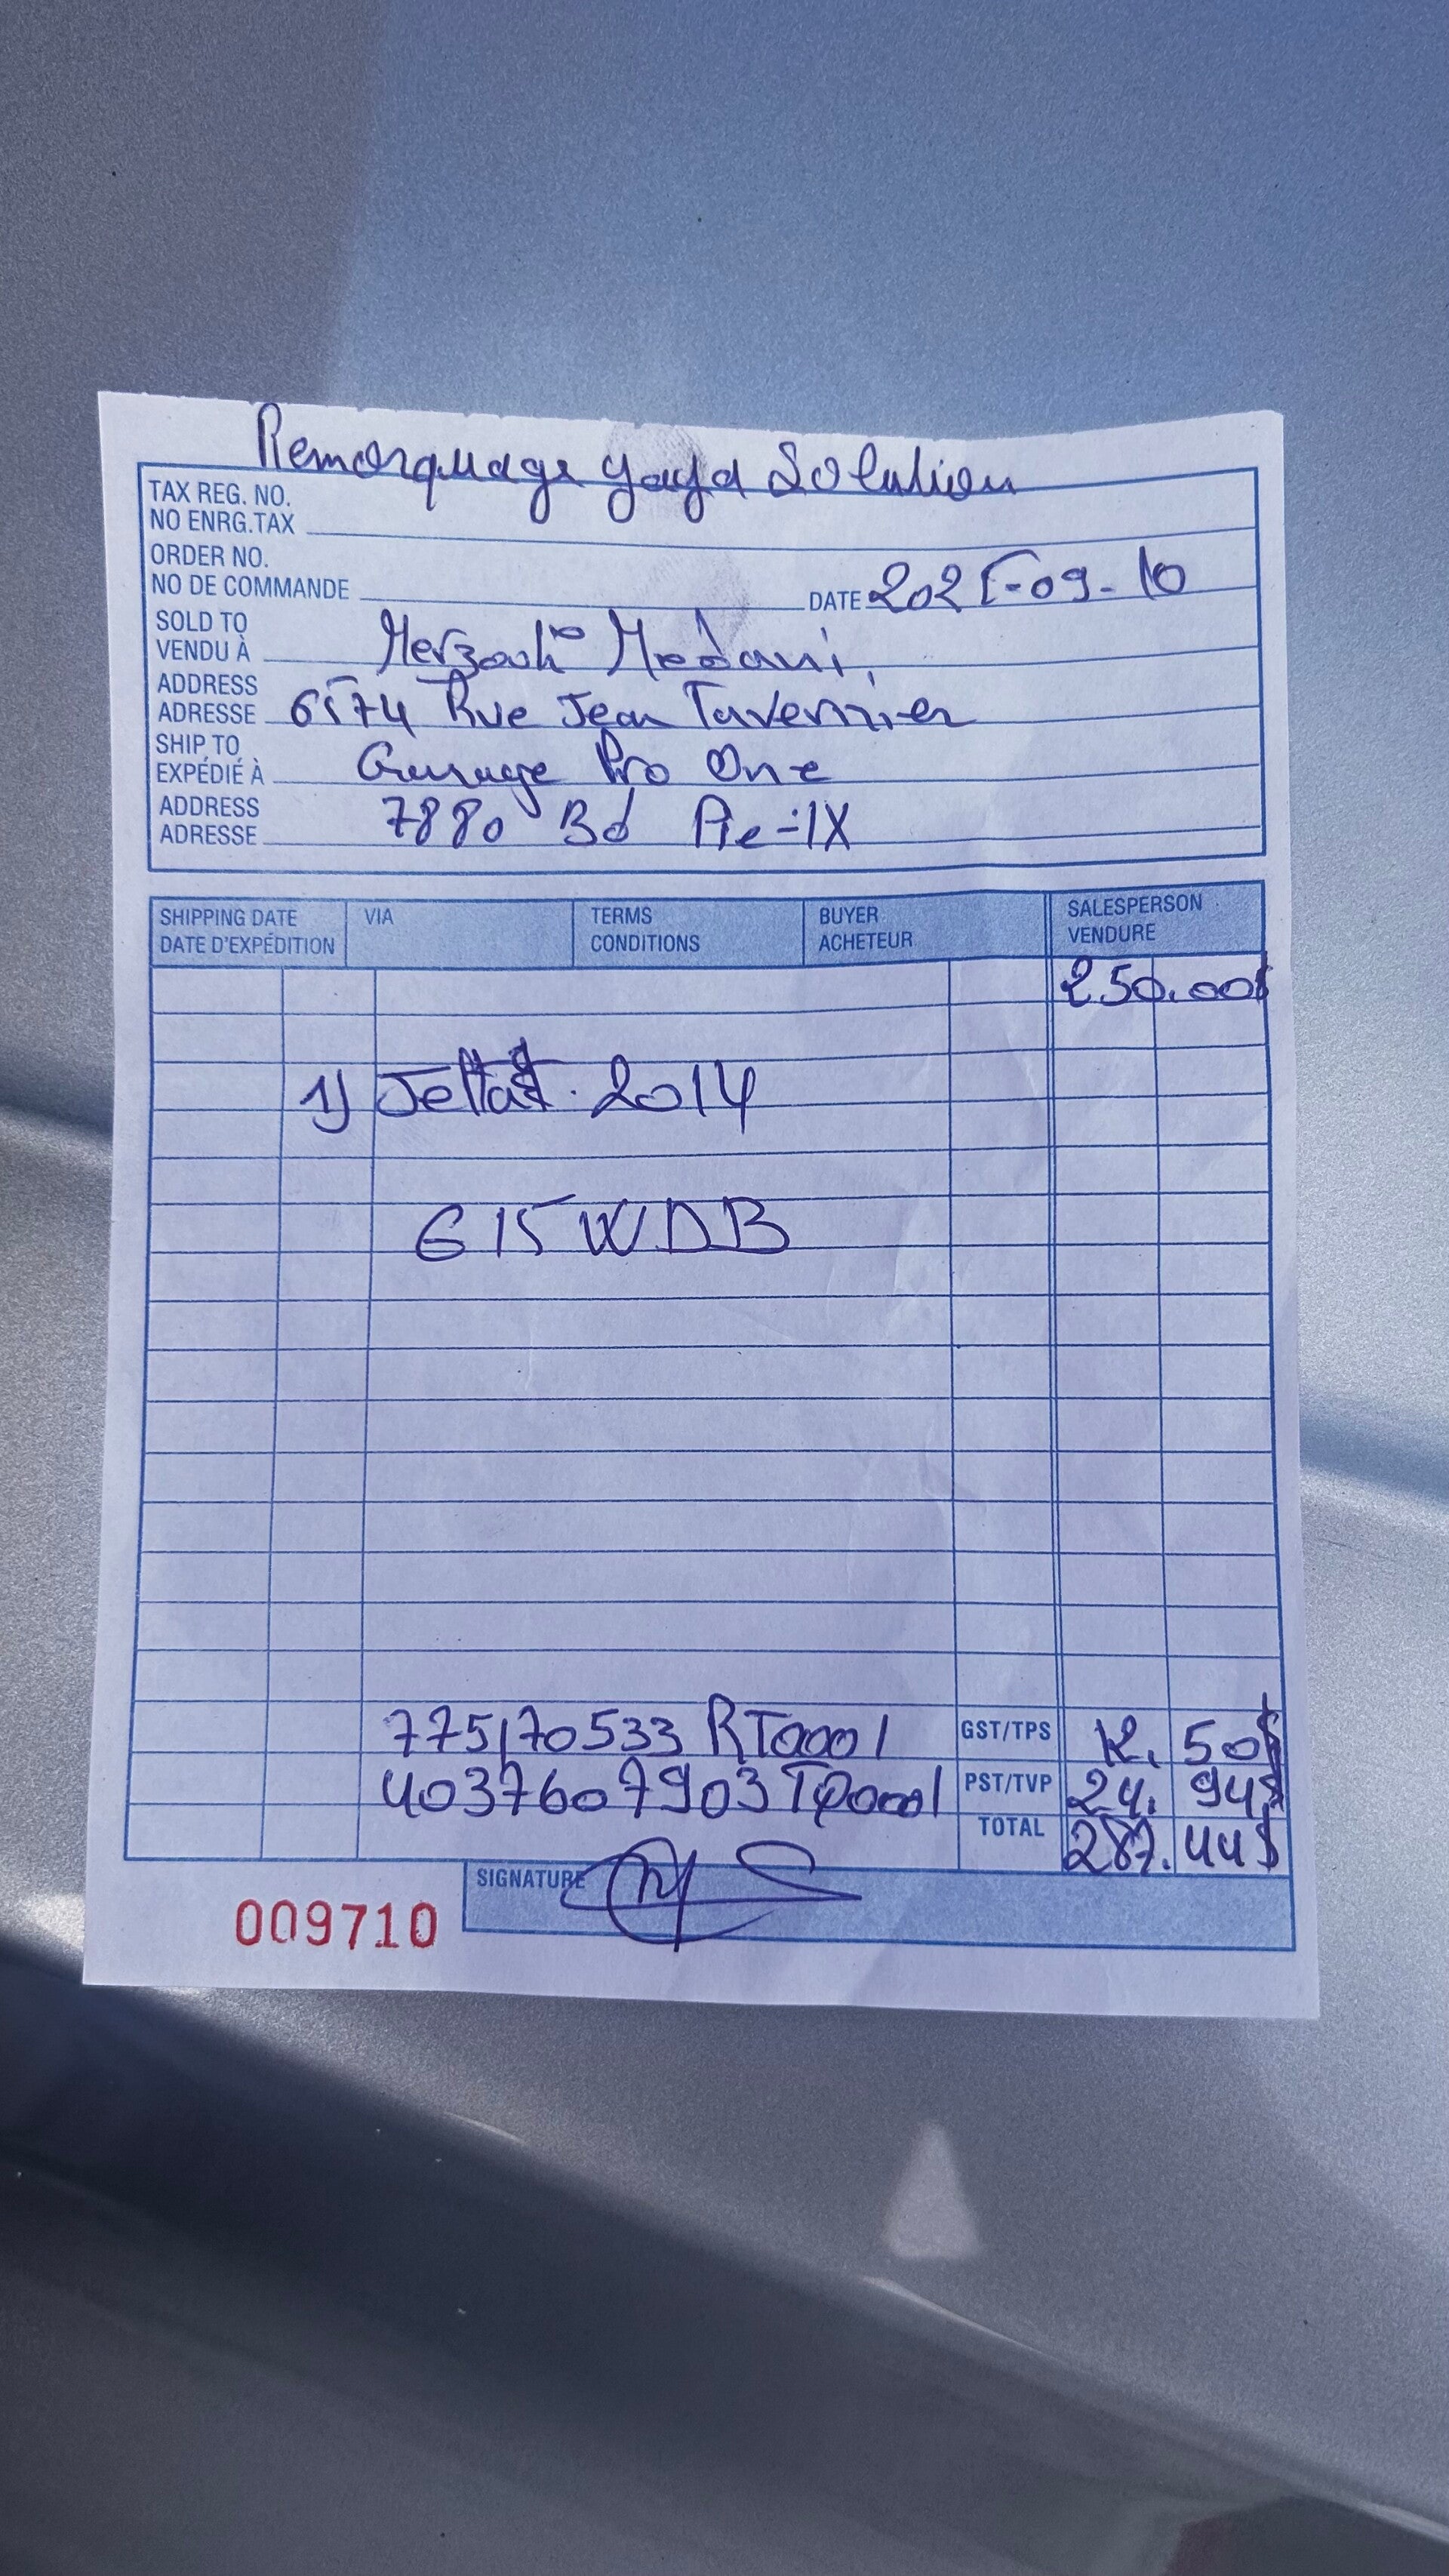 Remorquage Yaya Solution
TAX REG. NO.
NO ENRG.TAX
ORDER NO.
NO DE COMMANDE
DATE 2025-09-10
SOLD TO
VENDU À
Madani
ADDRESS
ADRESSE 6574 Rue Jean Tavernier
SHIP TO
EXPÉDIÉ À Garage Pro One
ADDRESS
ADRESSE 7880 Bd Pie-IX
SHIPPING DATE VIA TERMS BUYER SALESPERSON
DATE D'EXPÉDITION CONDITIONS ACHETEUR VENDURE
250.00$
1) Jetta 2014
G15WDB
775170533 RT0001 GST/TPS 12.50$
4037607903TQ0001 PST/TVP 24.94$
TOTAL 287.44$
SIGNATURE
009710